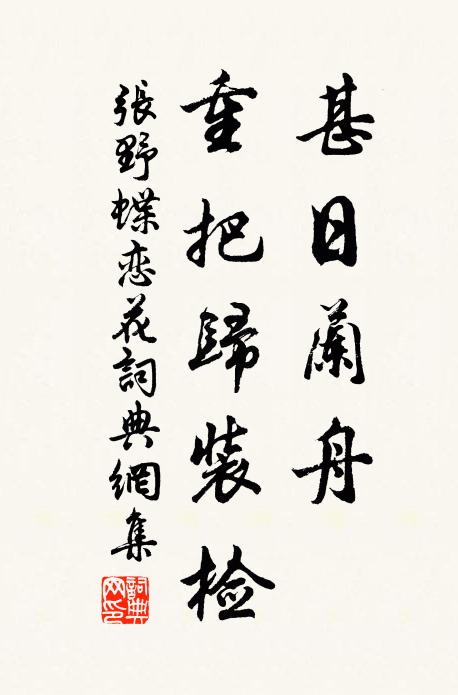 甚日蘭舟
重把歸裝檢
張野蝶恋花詞典網集
詞典
网印